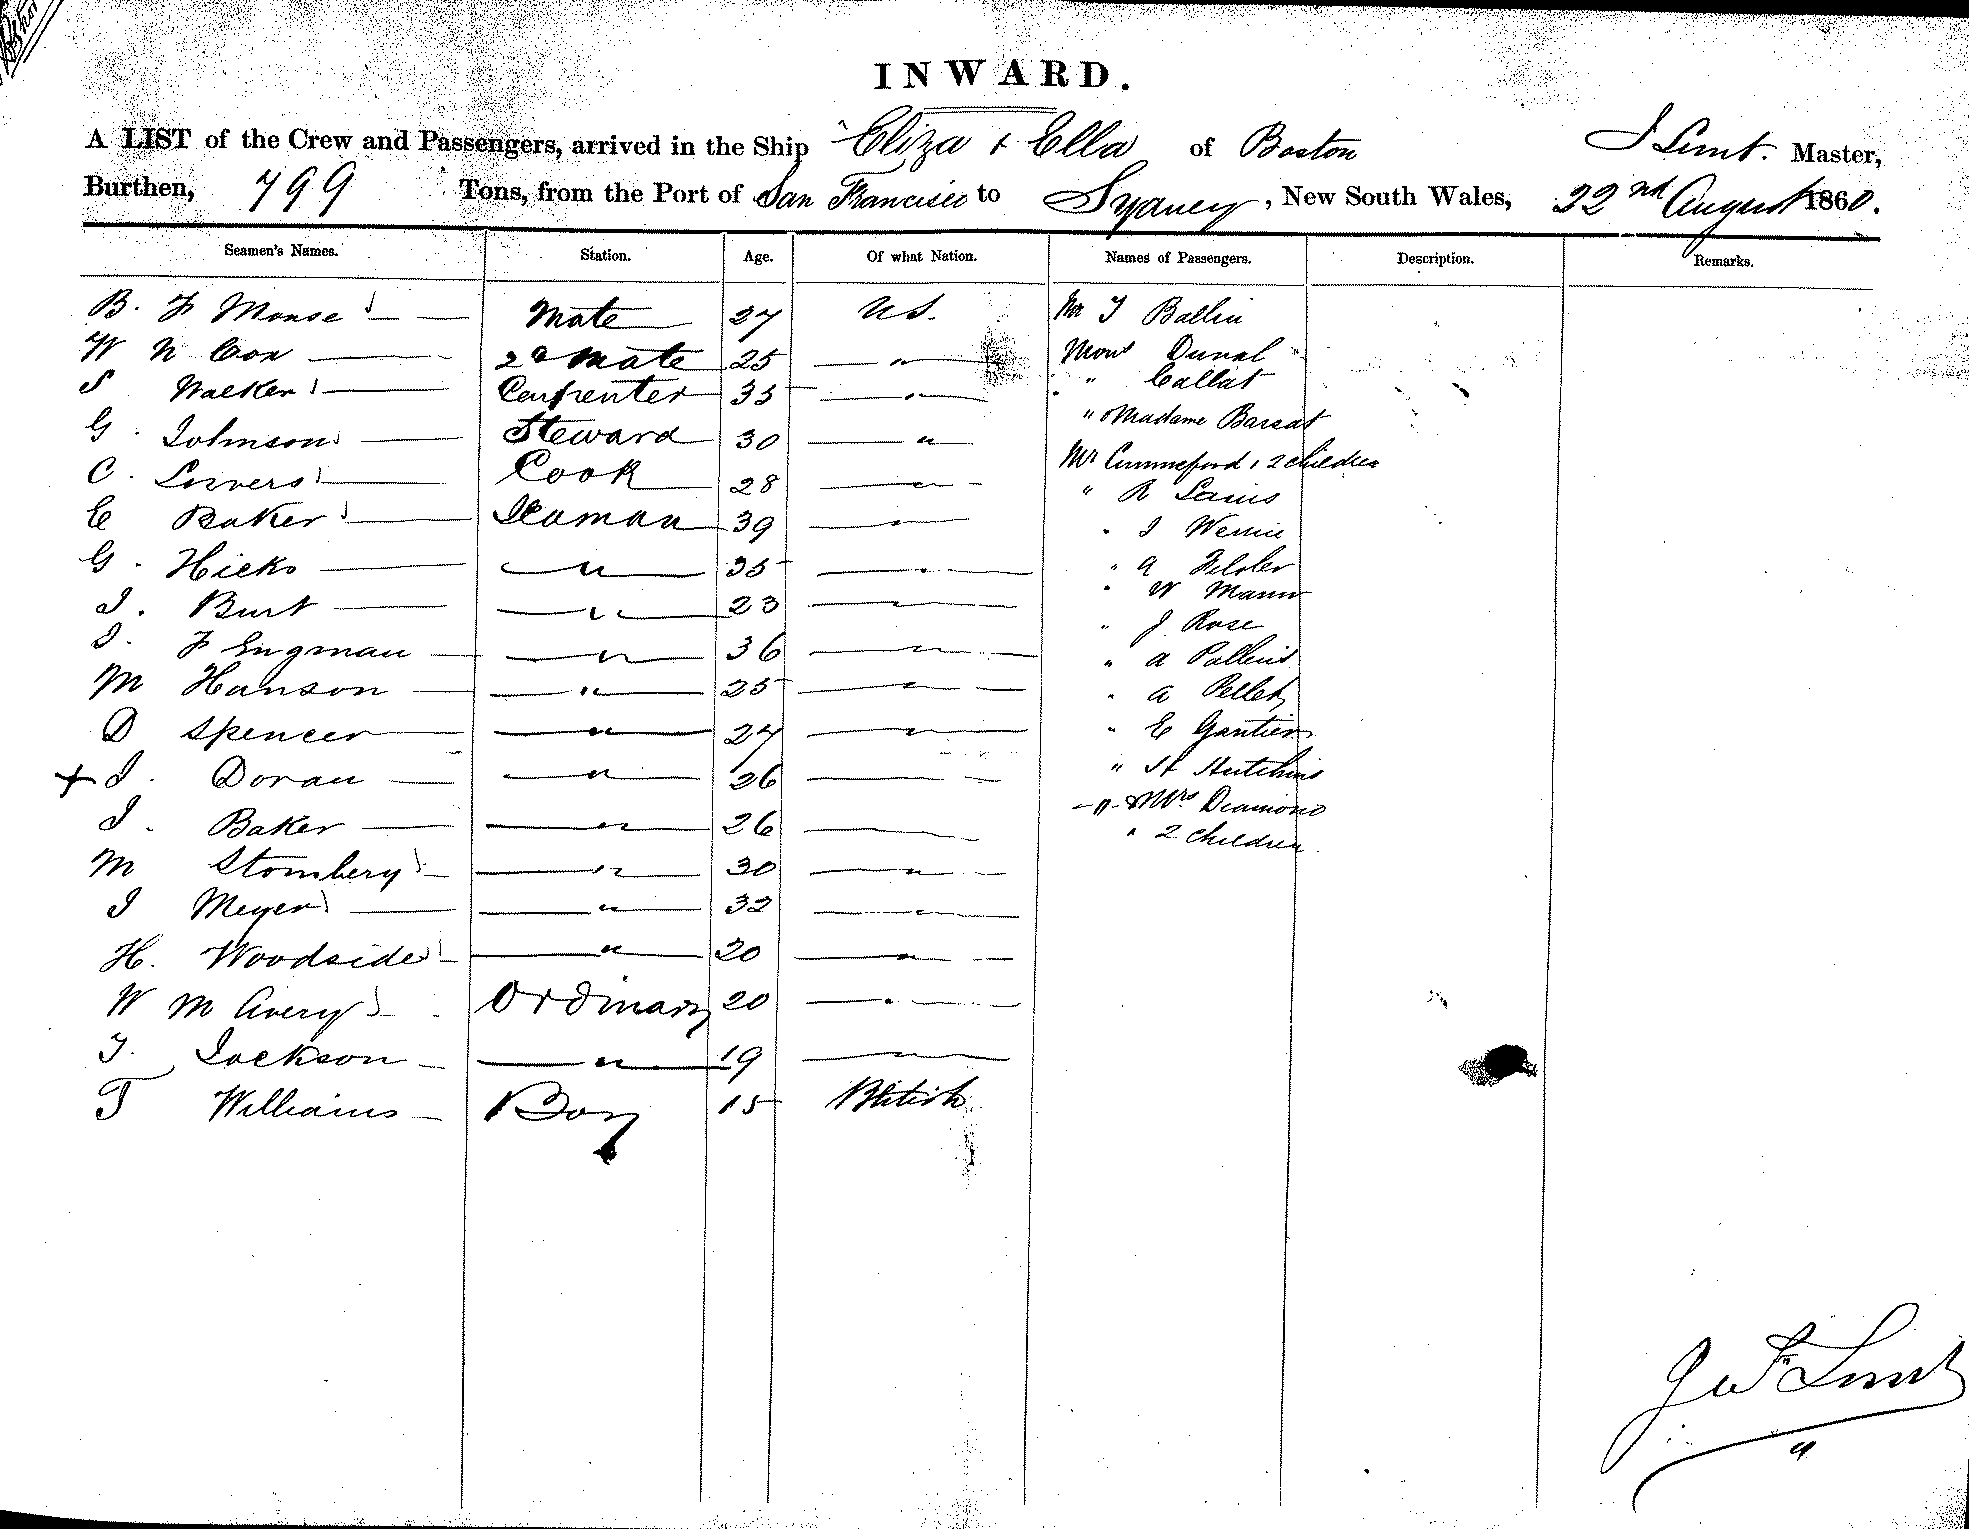 INWARD.
A LIST of the Crew and Passengers, arrived in the Ship Eliza & Ella of Boston J Lunt. Master,
Burthen, 799 Tons, from the Port of San Francisco to Sydney, New South Wales, 22nd August 1860.
Seamen's Names. Station. Age. Of what Nation. Names of Passengers. Description. Remarks.
B. F Morse Mate 27 U S. Mr J Ballin
W N Cox 2d Mate 25 " Mons Duval
S Walker Carpenter 35 " " Callat
G. Johnson Steward 30 " " & Madame Barsat
C. Cook 28 " Mr & 2 children
E Baker Seaman 39 " " R
G. Hicks " 35 " " J
J. Burt " 23 " " A
J. F Engman " 36 " " W Mann
M Hanson " 25 " " J. Rose
D Spencer " 24 " " A
+ J. Doran " 26 " " A Pellet
J. Baker " 26 " E Gautier
M Stombery " 30 " " H Hutchins
J Meyer " 32 " " & Mrs Diamond
H. Woodside " 20 " " 2 children
W M Avery Ordinary 20 "
J. Jackson " 19 "
T Williams Boy 15 British
Jas F Lunt